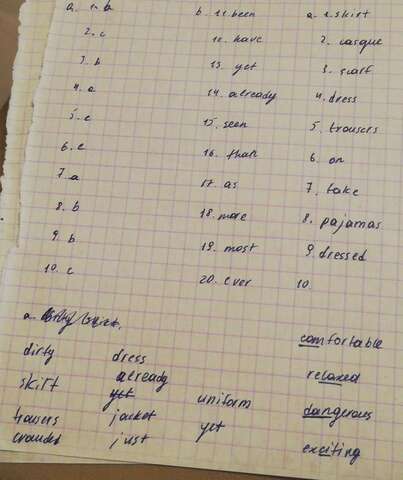 a. 1. b
2. c
3. b
4. a
5. c
6. c
7. a
8. b
9. b
10. c
b. 11. been
12. have
13. yet
14. already
15. seen
16. than
17. as
18. more
19. most
20. ever
a. 1. skirt
2. casque
3. scarf
4. dress
5. trousers
6. on
7. take
8. pajamas
9. dressed
10.
a.
dirty dress
skirt already
yet uniform
trousers jacket yet
crowded just
comfortable
relaxed
dangerous
exciting